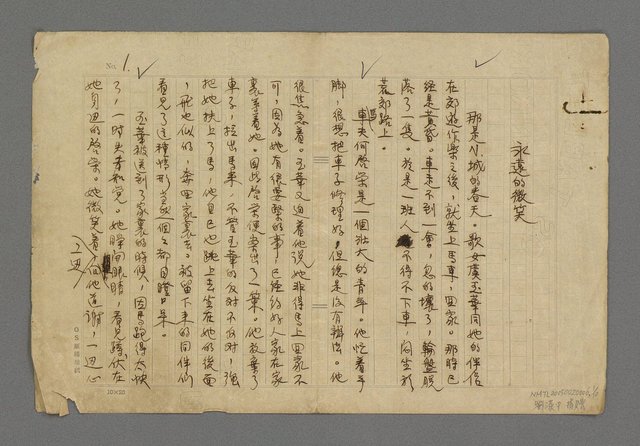 No. 1
永遠的微笑
那是小城的春天。歌女虞玉華同她的伴侶
在郊遊作樂之後，就坐上馬車，回家。那時已
經是黃昏。車走不到一會，忽的壞了，輪盤脫
落了一隻。於是一班人不得不下車，闷坐於
荒郊路上。
車夫何啓榮是一個壯大的青年。他忙着手
脚，很想把車子修理好，但總是沒有辦法。他
很焦急着。玉華又迫着他說她非得馬上回家不
可，因為她有很要緊的事，已經約好人家在家
裏等着她。因此啓榮便想出了一策。他放棄了
車子，拉出馬來，不管玉華的反對不反對，強
把她扶上了馬，他自己也跳上去坐在她的後面
，飛也似的，奔回家裏去。被留下來的同伴們
看見了這種情形，一個個都目瞪口呆。
玉華被送到了家裏的時候，因馬跑得太快
了，一時失去知覺。她睜開眼睛，看見蹲伏在
她身邊的啓榮。她微笑着，向他道謝，一邊心
10×20